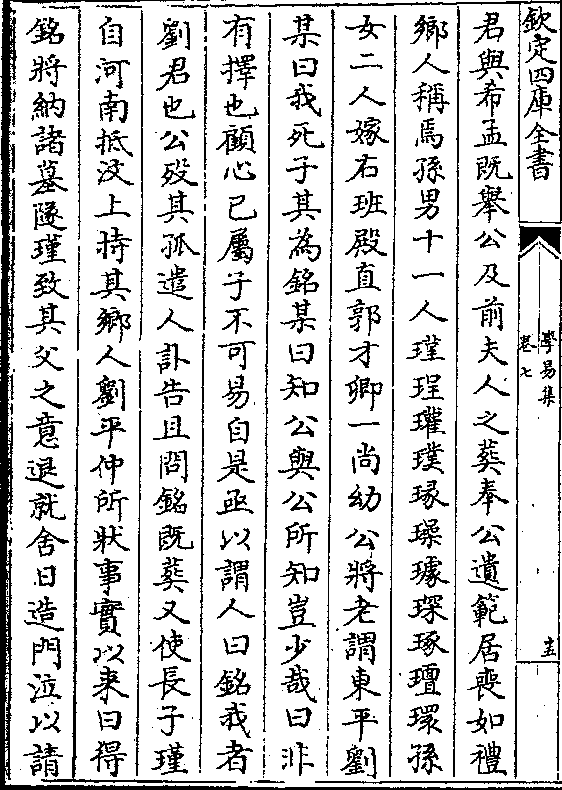 欽定四庫全書
學易集
卷七
十三
君與希孟既舉公及前夫人之葬奉公遺範居喪如禮
鄉人稱焉孫男十一人瑾珵瓘璞瑑璪璩琛琢璮環孫
女二人嫁右班殿直郭才卿一尚幼公將老謂東平劉
某曰我死子其為銘某曰知公與公所知豈少哉曰非
有擇也顧心已屬子不可易自是亟以謂人曰銘我者
劉君也公殁其孤遣人訃告且問銘既葬又使長子瑾
自河南抵汶上持其鄉人劉平仲所狀事實以來曰得
銘將納諸墓隧瑾致其父之意退就舍日造門泣以請